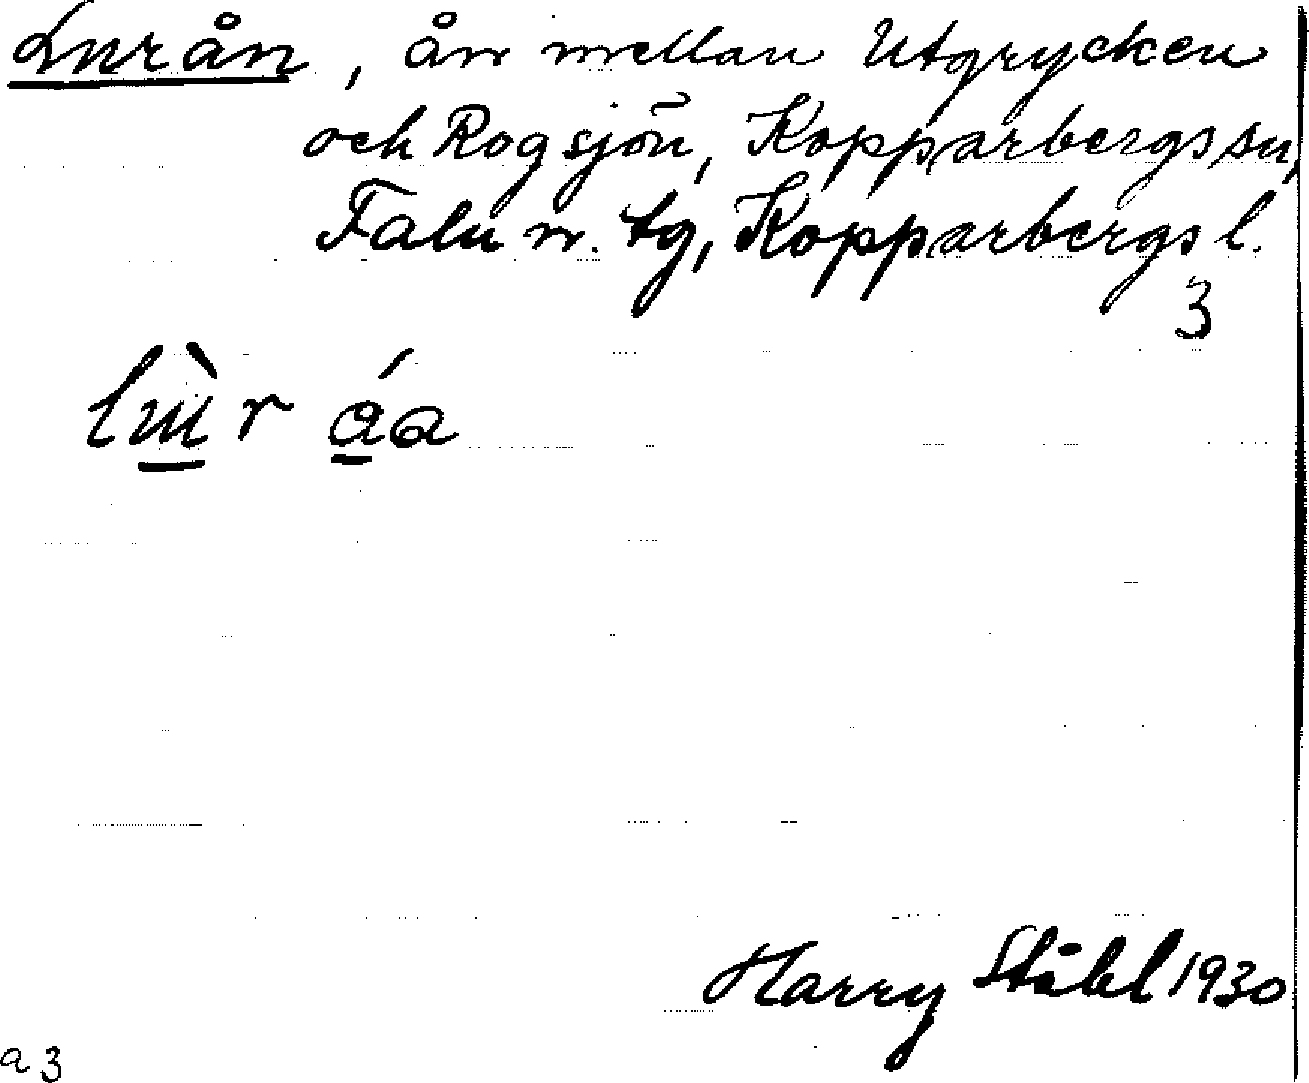 Lurån, ån mellan Utgrycken
och Rogsjön, Kopparbergs sn,
Falu n. tg, Kopparbergs l.
3
lùr áa
Harry Ståhl 1930
a 3